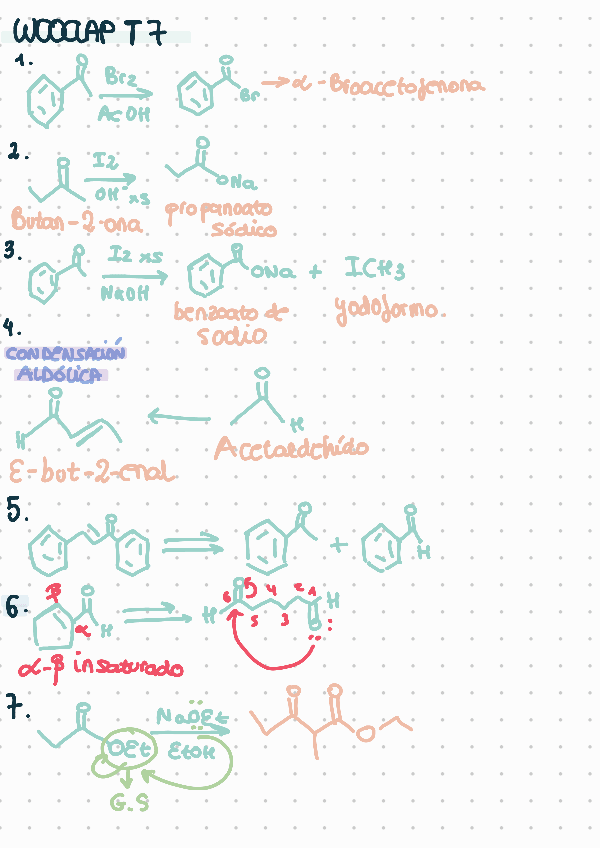 WOOCLAP T7
1.
O
Br2
AcOH
O
Br
→ α-Bromoacetofenona
2.
O
I2
OH⁻ xs
O
ONa
Butan-2-ona
propanoato
sódico
3.
O
I2 xs
NaOH
O
ONa + ICH3
benzoato de
sodio
yodoformo
4.
CONDENSACIÓN
ALDÓLICA
O
H
O
H
E-but-2-enal
Acetaldehído
5.
O
O
+
O
H
6.
β
O
α
H
H
O
6
5
4
3
2
1
H
O
α-β insaturado
7.
O
OEt
NaOEt
EtOH
O
O
O
G.S